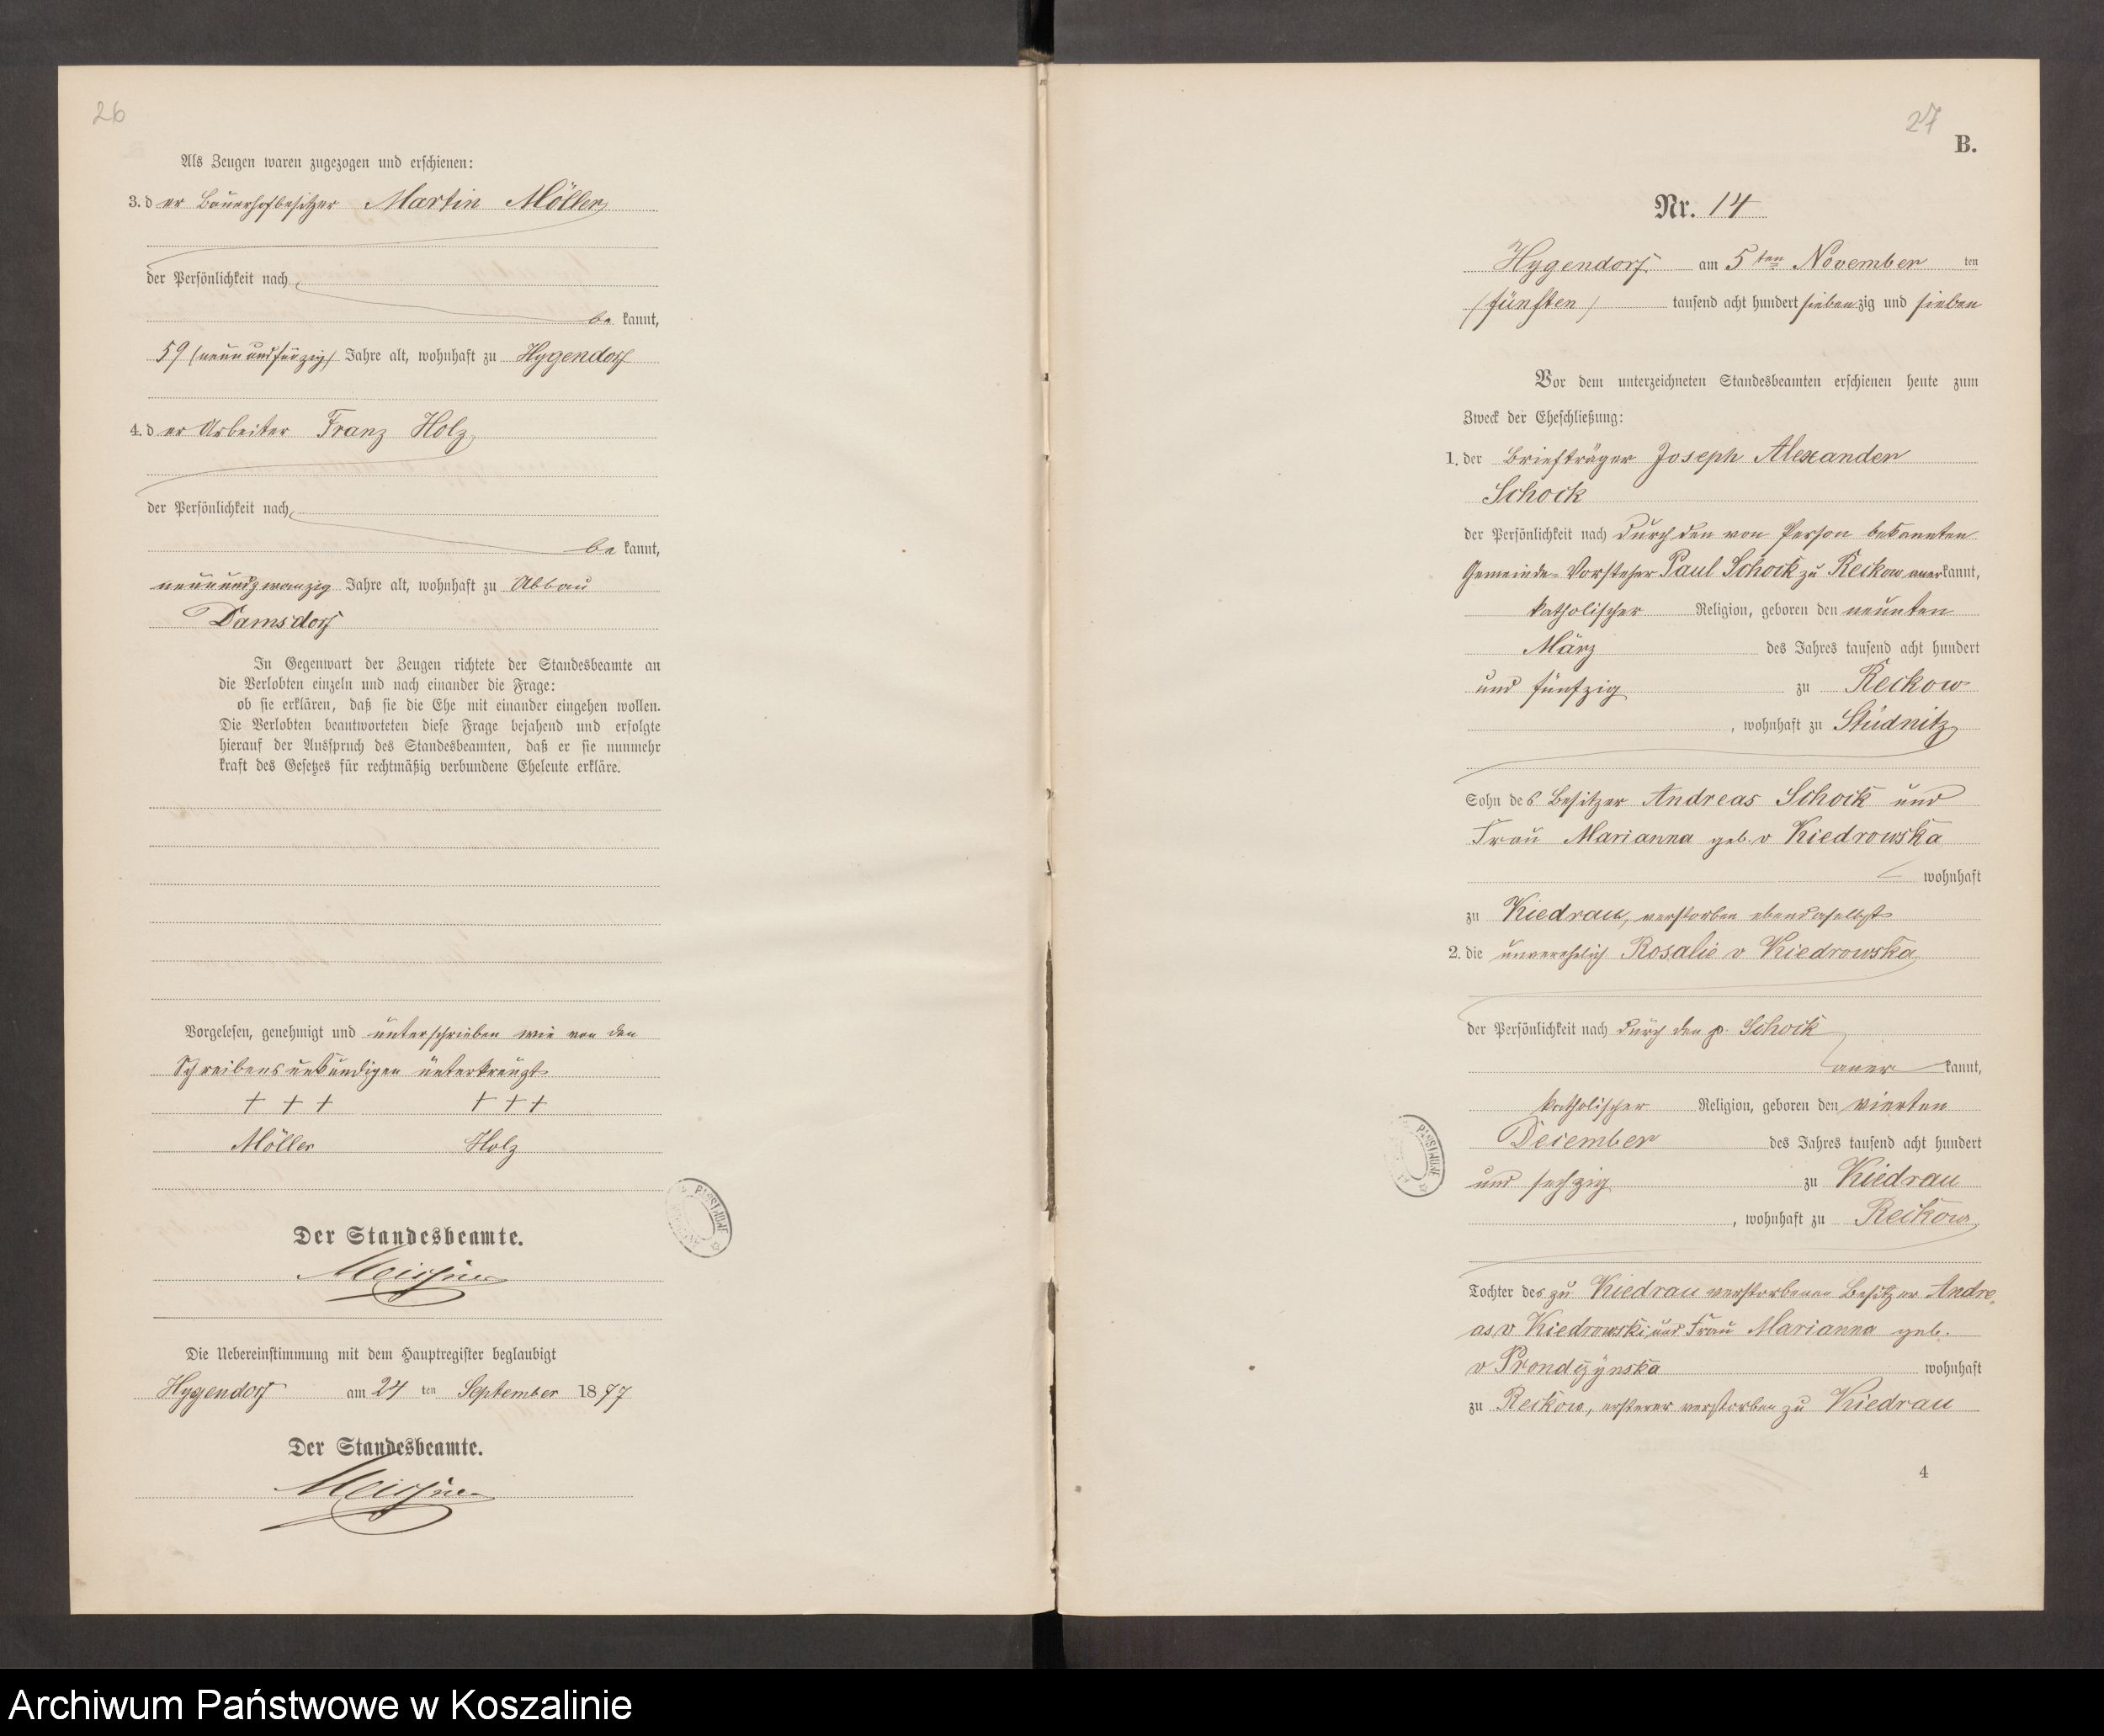 26
Als Zeugen waren zugezogen und erschienen:
3. der Bauerhofbesitzer Martin Möller
der Persönlichkeit nach
be kannt,
59 (neun und fünzig) Jahre alt, wohnhaft zu Hygendorf
4. der Arbeiter Franz Holz
der Persönlichkeit nach
be kannt,
neunundzwanzig Jahre alt, wohnhaft zu Abbau
Damsdorf
In Gegenwart der Zeugen richtete der Standesbeamte an
die Verlobten einzeln und nach einander die Frage:
ob sie erklären, daß sie die Ehe mit einander eingehen wollen.
Die Verlobten beantworteten diese Frage bejahend und erfolgte
hierauf der Ausspruch des Standesbeamten, daß er sie nunmehr
kraft des Gesetzes für rechtmäßig verbundene Eheleute erkläre.
Vorgelesen, genehmigt und unterschrieben wie von den
Schreibensunkundigen unterkreuzt
+ + + + + +
Möller Holz
Der Standesbeamte.
Die Uebereinstimmung mit dem Hauptregister beglaubigt
Hygendorf am 24 ten September 1877
Der Standesbeamte.
27
B.
Nr. 14
Hygendorf am 5ten November ten
(fünften) tausend acht hundert siebenzig und sieben
Vor dem unterzeichneten Standesbeamten erschienen heute zum
Zweck der Eheschließung:
1. der Briefträger Joseph Alexander
Schock
der Persönlichkeit nach durch den von Person bekannten
Gemeinde-Vorsteher Paul Schock zu Reckow anerkannt,
katholischer Religion, geboren den neunten
März des Jahres tausend acht hundert
und fünfzig zu Reckow
, wohnhaft zu Stüdnitz
Sohn des Besitzer Andreas Schock und
Frau Marianna geb. v Kiedrowska
wohnhaft
zu Kiedrau, verstorben ebendaselbst
2. die unverehelich Rosalie v Kiedrowska
der Persönlichkeit nach durch den p. Schock
aner kannt,
katholischer Religion, geboren den vierten
December des Jahres tausend acht hundert
und sechzig zu Kiedrau
, wohnhaft zu Reckow
Tochter des zu Kiedrau verstorbenen Besitzer Andre
as v Kiedrowski und Frau Marianna geb.
v Prondzynska wohnhaft
zu Reckow, ersterer verstorben zu Kiedrau
4
PAŃSTWOWE
PAŃSTWOWE
Archiwum Państwowe w Koszalinie